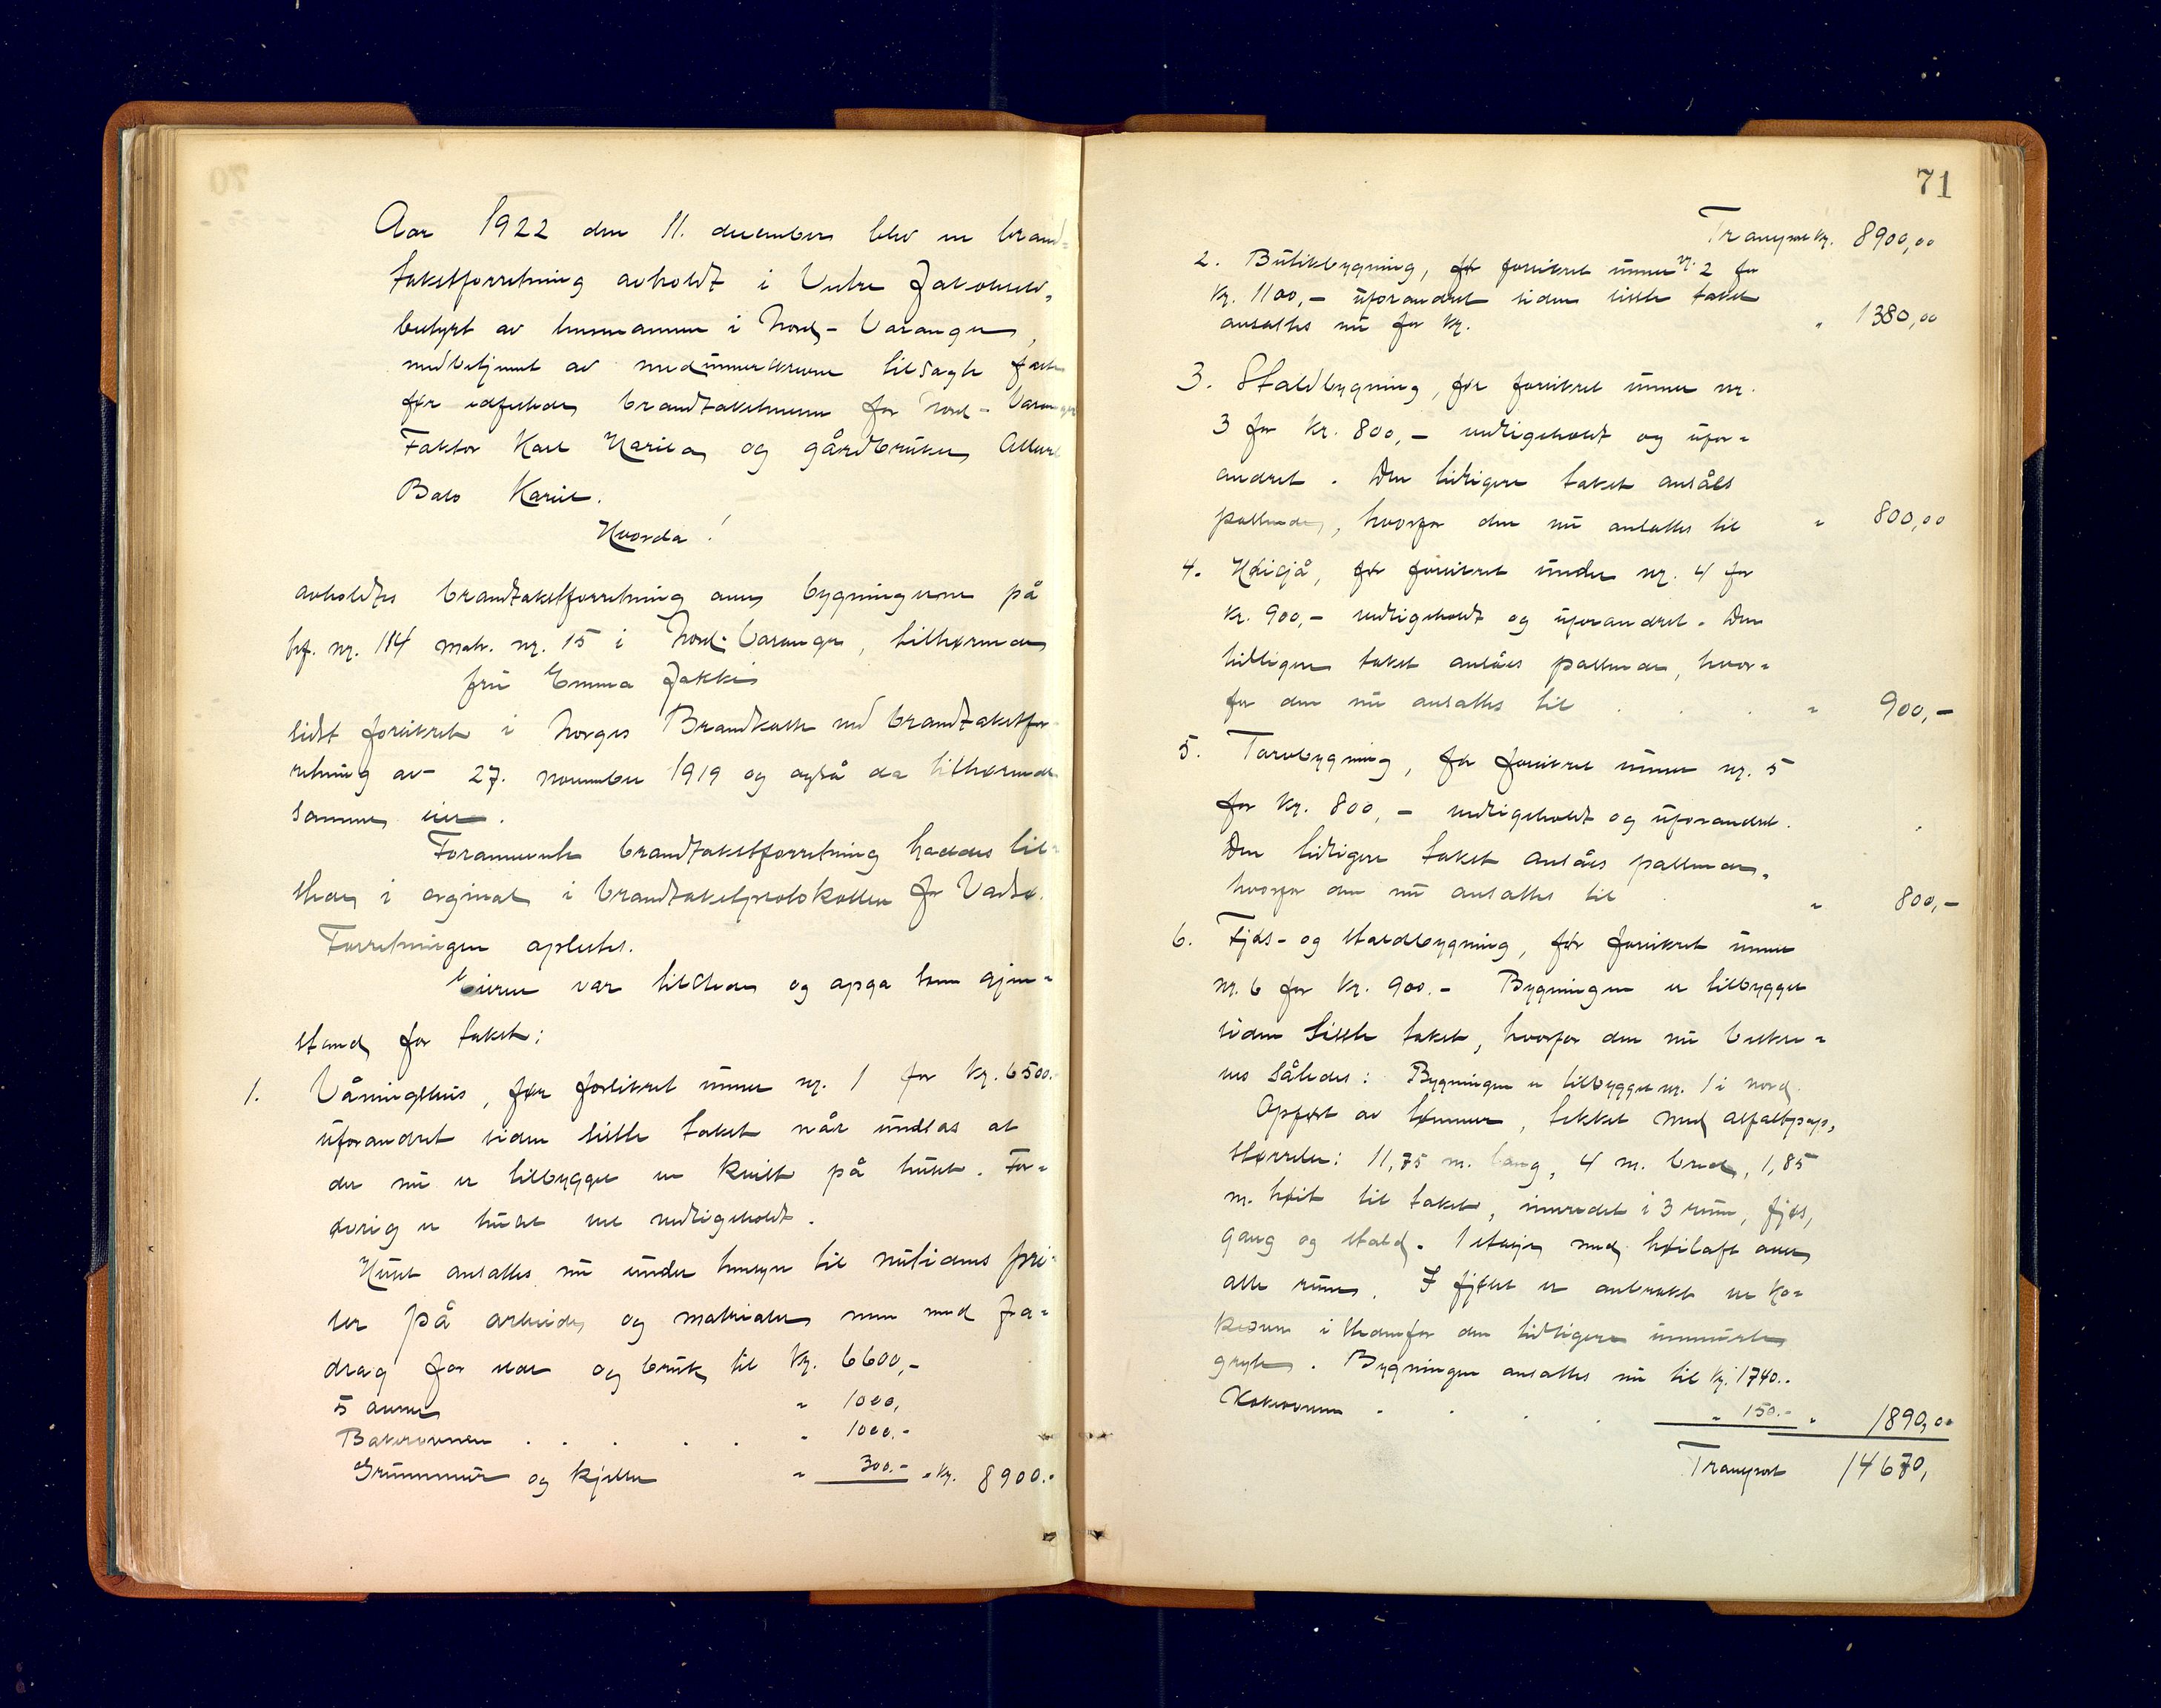 Aar 1922 den 11. december blev en brand=
takstforretning avholdt i Vestre Jakobselv,
bestyrt av lensmannen i Nord-Varanger,
medbetjent av medunderskrevne tilsagte faste
før edfestede brandtakstmenn for Nord-Varanger
Faktor Karl Karila og gårdbruker
Bato Karie.
Hvorda!
avholdtes brandtakstforretning over bygningerne på
br. nr. 114 matr. nr. 15 i Nord-Varanger, tilhørende
fru Emma Jakkis
sidst forsikret i Norges Brandkasse ved brandtakstfor-
retning av 27. november 1919 og også da tilhørende
samme eier.
Forannevnte brandtakstforretning haddes til-
stede i orginal i brandtakstprotokollen for Vadsø.
Forretningen oplestes.
Eieren var tilstede og opga som gjen-
stand for takst:
1. Våningshus, før forsikret under nr. 1 for kr. 6500.-
uforandret siden sidste takst når undtas at
der nu er tilbygget en kvist på huset. For-
øvrig er huset vel vedligeholdt.
Huset ansattes nu under hensyn til nutidens pri-
ser på arbeide og materialer men med fra-
drag for elde og bruk til kr. 6600,-
5 ovner " 1000,
Bakerovnen . . . . . " 1000.-
Grunnmur og kjeller " 300.- " kr. 8900.-
71
Transport kr. 8900,00
2. Butikbygning, før forsikret under nr. 2 for
kr. 1100,- uforandret siden sidste takst
ansattes nu for kr. " 1380,00
3. Staldbygning, før forsikret under nr.
3 for kr. 800,- vedligeholdt og ufor=
andret. Den tidligere takst ansåes
passende, hvorfor den nu ansattes til " 800,00
4. Høisjå, før forsikret under nr. 4 for
kr. 900,- vedligeholdt og uforandret. Den
tidligere takst ansåes passende, hvor=
for den nu ansattes til . . . " 900,-
5. Torvbygning, før forsikret under nr. 5
for kr. 800,- vedligeholdt og uforandret.
Den tidligere takst ansåes passende,
hvorfor den nu ansattes til " 800,-
6. Fjøs- og staldbygning, før forsikret under
nr. 6 for kr. 900.- Bygningen er tilbygget
siden sidste takst, hvorfor den nu beskri=
ves således: Bygningen er tilbygget nr. 1 i nord.
Opført av tømmer, tekket med asfaltpap,
størrelse: 11,75 m. lang, 4 m. bred, 1,85
m. høit til taket, innredet i 3 rum, fjøs,
gang og stald. 1 etasje med høiloft over
alle rum. I fjøset er anbrakt en ko=
keovn i stedenfor den tidligere innmurte
gryte. Bygningen ansattes nu til kr. 1740.-
Kokeovnen . . . . " 150.- " 1890,00
Transport 14670,